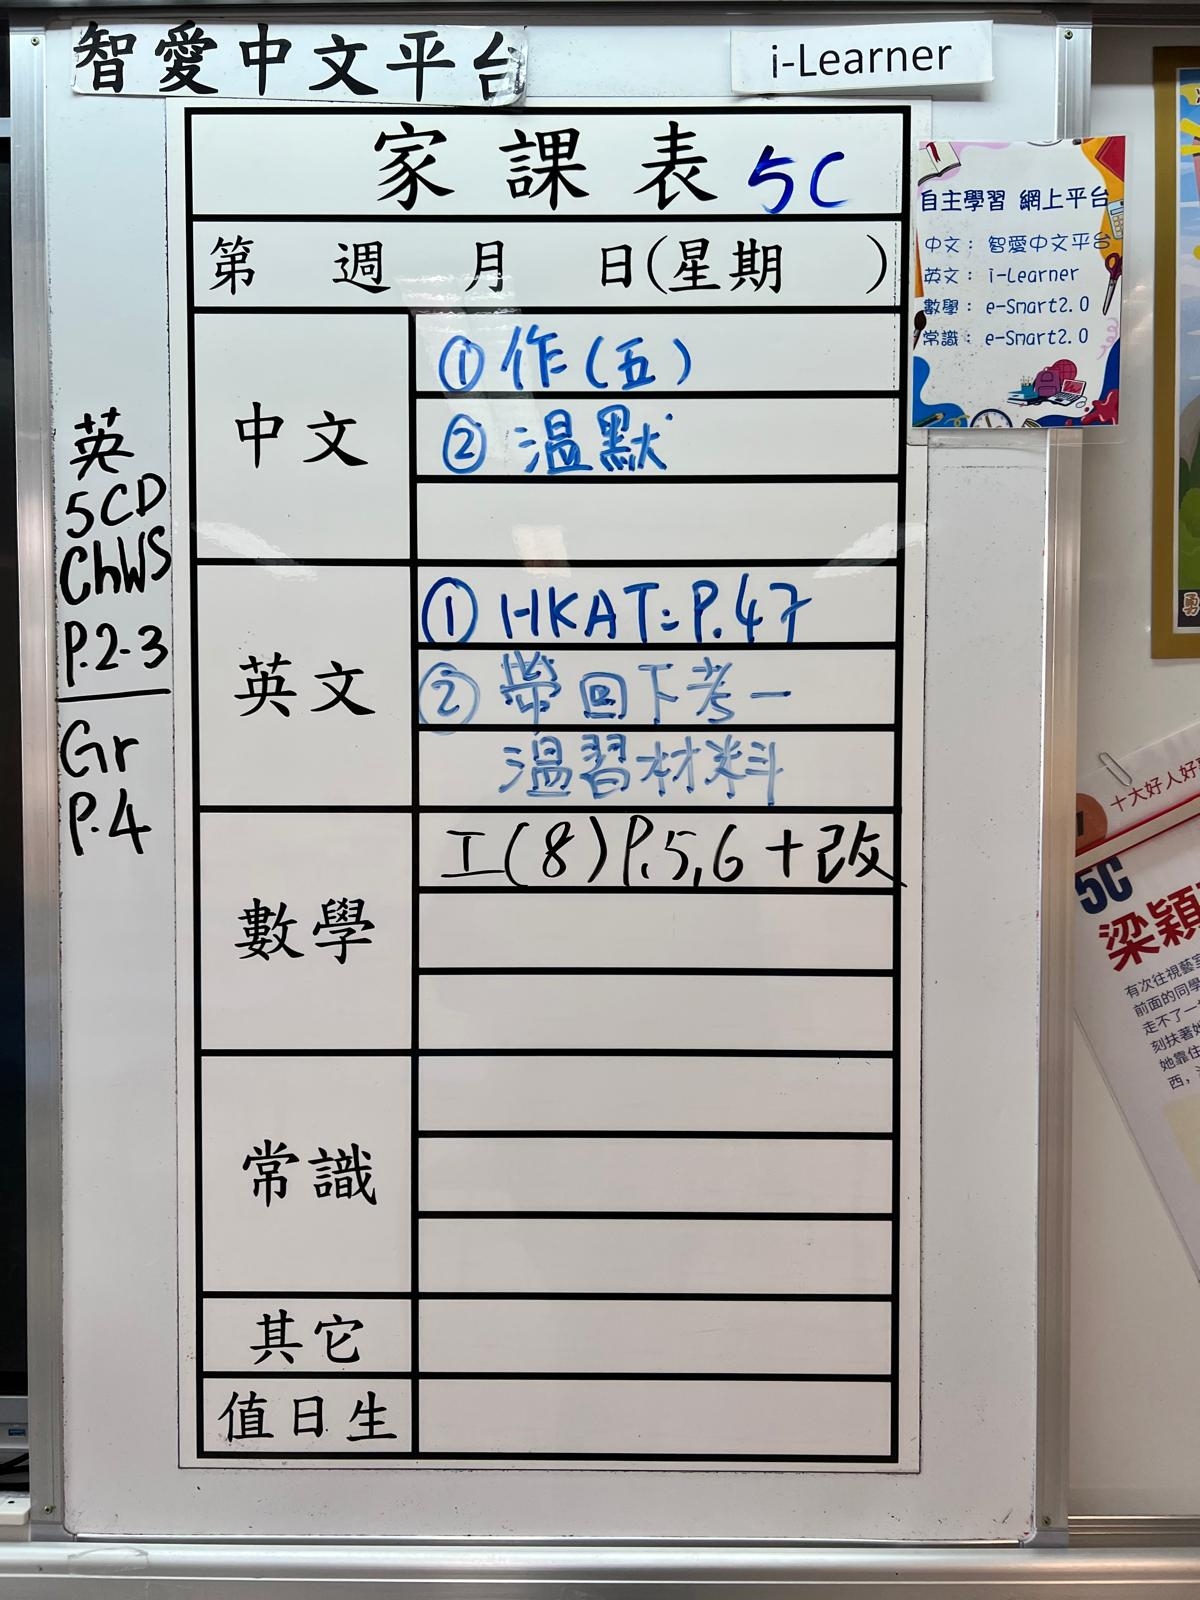 智愛中文平台
i-Learner
家課表 5C
第 週 月 日(星期 )
中文
① 作(五)
② 溫默
英文
① HKAT: P.47
② 帶回下考一
溫習材料
數學
工(8) P.5,6 + 改
常識
其它
值日生
英
5CD
ChWS
P.2-3
Gr
P.4
自主學習 網上平台
中文： 智愛中文平台
英文： i-Learner
數學： e-Smart2.0
常識： e-Smart2.0
勇
十大好人好
5C
梁穎
有次往視藝室
前面的同學
走不了一
刻扶著她
她靠住
西，